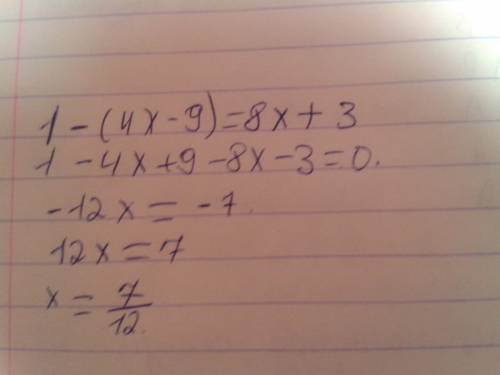 1 - (4x - 9) = 8x + 3
1 - 4x + 9 - 8x - 3 = 0.
-12x = -7.
12x = 7
x = 7/12.